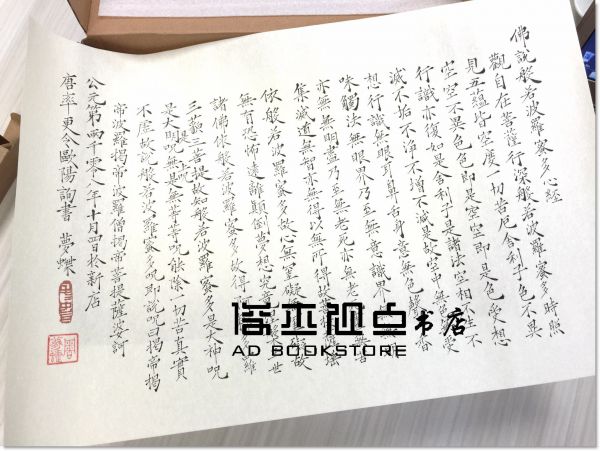 佛說般若波羅蜜多心經
觀自在菩薩行深般若波羅蜜多時照
見五蘊皆空度一切苦厄舍利子色不異
空空不異色色即是空空即是色受想
行識亦復如是舍利子是諸法空相不生不
滅不垢不淨不增不減是故空中無色無受
想行識無眼耳鼻舌身意無色聲香
味觸法無眼界乃至無意識界無無明
亦無無明盡乃至無老死亦無老
集滅道無智亦無得以無所得故
依般若波羅蜜多故心無罣礙礙故
無有恐怖遠離顛倒夢想究三世
諸佛依般若波羅蜜多故得多羅
三藐三菩提故知般若波羅蜜多是大神呪
是大明呪是無等等呪能除一切苦真實
不虛故說般若波羅蜜多呪即說呪曰揭帝揭
帝般羅揭帝波羅僧揭帝菩提薩婆訶
公元第兩千零八年十月四日於新店
唐率更令歐陽詢書 夢蝶
俊杰视点书店
AD BOOKSTORE